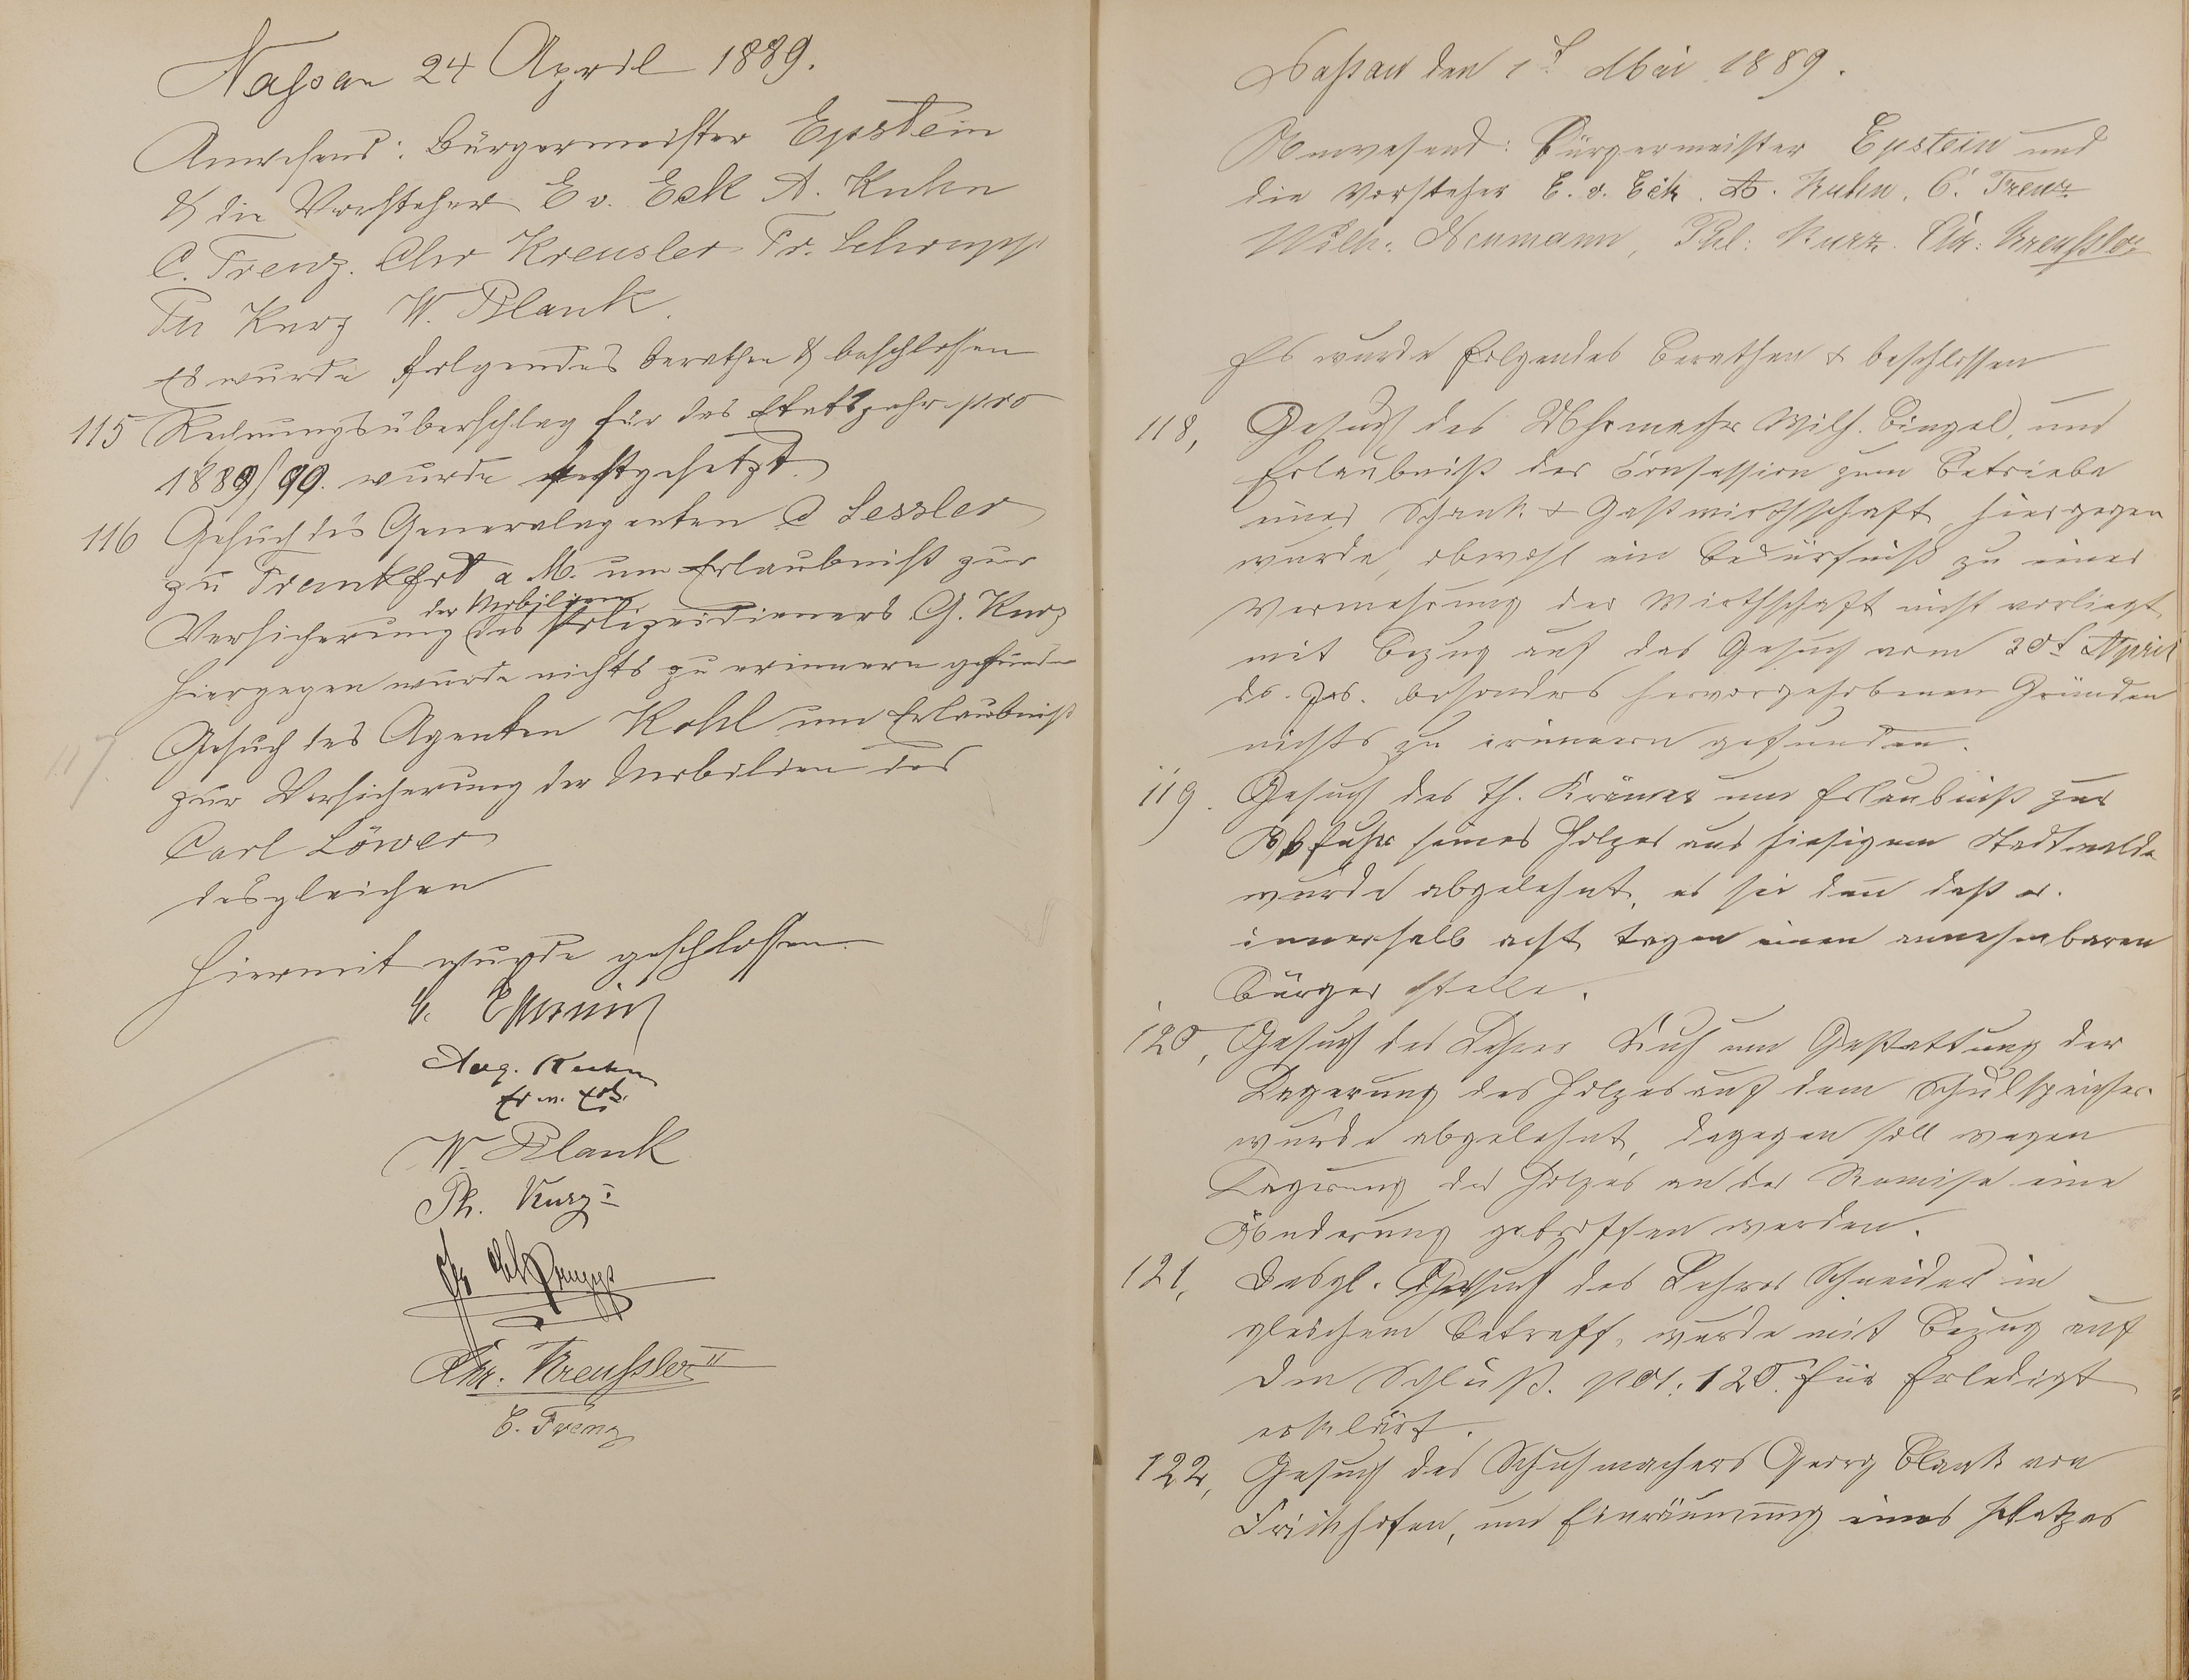 Nassau 24 April 1889.
Anwesend: Bürgermeister Epstein
& die Vorsteher E v. Eck A. Kuhn
C. Trenz. Chr Kreusler Fr. Schrupp
Ph Kurz W. Blank.
Es wurde folgendes berathen & beschlossen
115 Rechnungsüberschlag für das Etatsjahr pro
1889/90. wurde festgesetzt.
116 Gesuch des Generalagenten C Sessler
zu Frankfort a M. um Erlaubniß zur
der Mobilien
Versicherung des Polizeidieners G. Kurz
hiergegen wurde nichts zu erinnern gefunden
117. Gesuch des Agenten Kohl um Erlaubniß
zur Versicherung der Mobilien des
Carl Löwer
desgleichen
Hiermit wurde geschlossen.
Epstein
Aug. Kuhn
E. v. Eck.
W. Blank
Ph. Kurz
Chr. Kreußler II
C. Trenz
Nassau den 1t. Mai 1889.
Anwesend: Bürgermeister Epstein und
die Vorsteher E. v. Eck. A. Kuhn. C. Trenz
Wilh. Neumann, Phl: Kurz. Chr: Kreußler
Es wurde folgendes berathen & beschlossen
118, Gesuch des Uhrmacher Wilh. Bingel, um
Erlaubniß der Consession zum Betriebe
einer Schank & Gastwirthschaft, hiergegen
wurde, obwohl ein Bedürfniß zu einer
Vermehrung der Wirthschaft nicht vorliegt
mit Bezug auf das Gesuch vom 30t April
ds. Jrs. besonders hervorgehobenen Gründen
nichts zu erinnern gefunden.
119. Gesuch des Th. Krämer um Erlaubniß zur
Abfuhr seines Holzes aus hiesigem Stadtwalde
wurde abgelehnt, es sei denn daß er.
innerhalb acht Tagen einen annehmbaren
Bürgen stelle.
120, Gesuch des Lehrer Kuh um Gestattung der
Lagerung des Holzes auf dem Schulspeicher.
wurde abgelehnt, dagegen soll wegen
Lagerung des Holzes an der Remise eine
Änderung getroffen werden.
121, Desgl. Gesuch des Lehrer Schneider in
gleichem Betreff, wurde mit Bezug auf
den Schluß. pos: 120. für Erledigt
erklärt.
122, Gesuch des Schuhmachers Georg Blank von
Frickhofen, um Einräumung eines Platzes